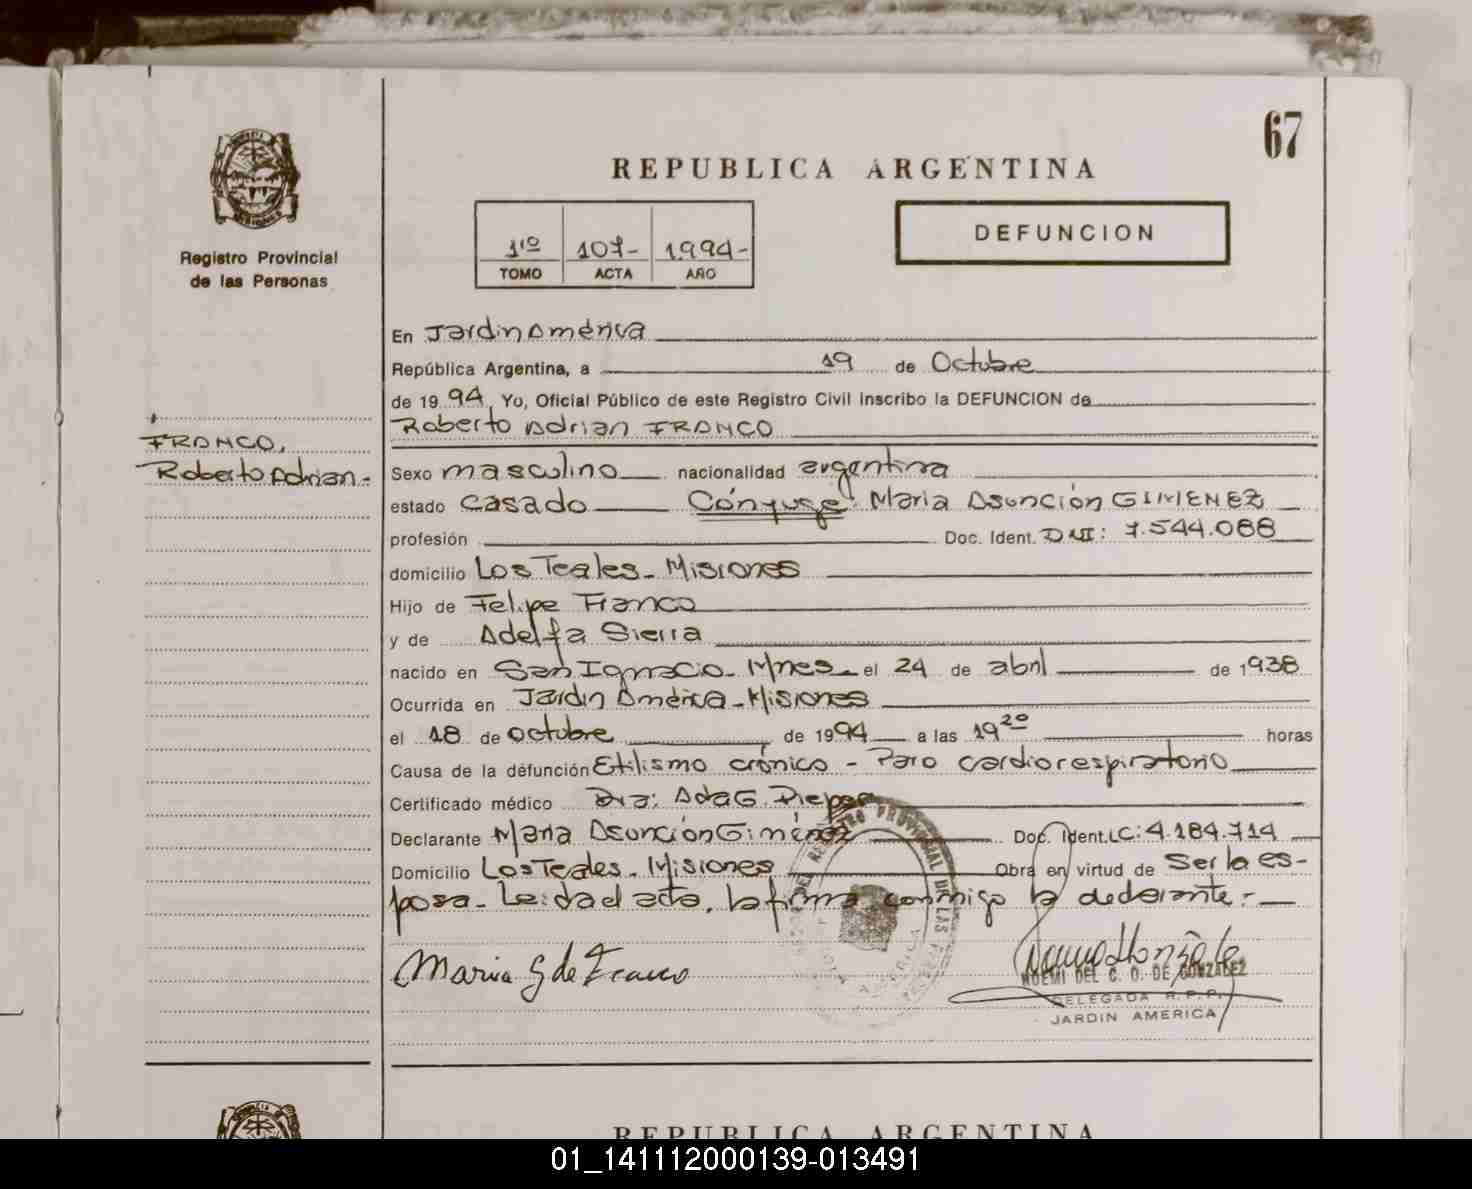 67
REPUBLICA ARGENTINA
Registro Provincial
de las Personas
1º 107- 1994-
TOMO ACTA AÑO
DEFUNCION
En Jardin América
República Argentina, a 19 de Octubre
de 1994 Yo, Oficial Público de este Registro Civil inscribo la DEFUNCION de
Roberto Adrian FRANCO
FRANCO,
Roberto Adrian-
Sexo masculino nacionalidad argentina
estado Casado Cónyuge: Maria Asunción GIMENEZ
profesión Doc. Ident. DNI: 7.544.088
domicilio Los Teales- Misiones
Hijo de Felipe Franco
y de Adelfa Sierra
nacido en San Ignacio- Mnes- el 24 de abril de 1938
Ocurrida en Jardin América- Misiones
el 18 de octubre de 1994 a las 19 20 horas
Causa de la defunción Etilismo crónico - Paro cardiorespiratorio
Certificado médico Dra: Ada G.
Declarante Maria Asunción Giménez Doc. Ident. LC: 4.184.714
Domicilio Los Teales- Misiones Obra en virtud de Ser la es-
posa- Leida el acta, la firma conmigo la declarante.-
Maria G de Franco
NOEMI DEL C. O. DE GONZALEZ
DELEGADA R.P.P.
JARDIN AMERICA
REPUBLICA ARGENTINA
01_141112000139-013491